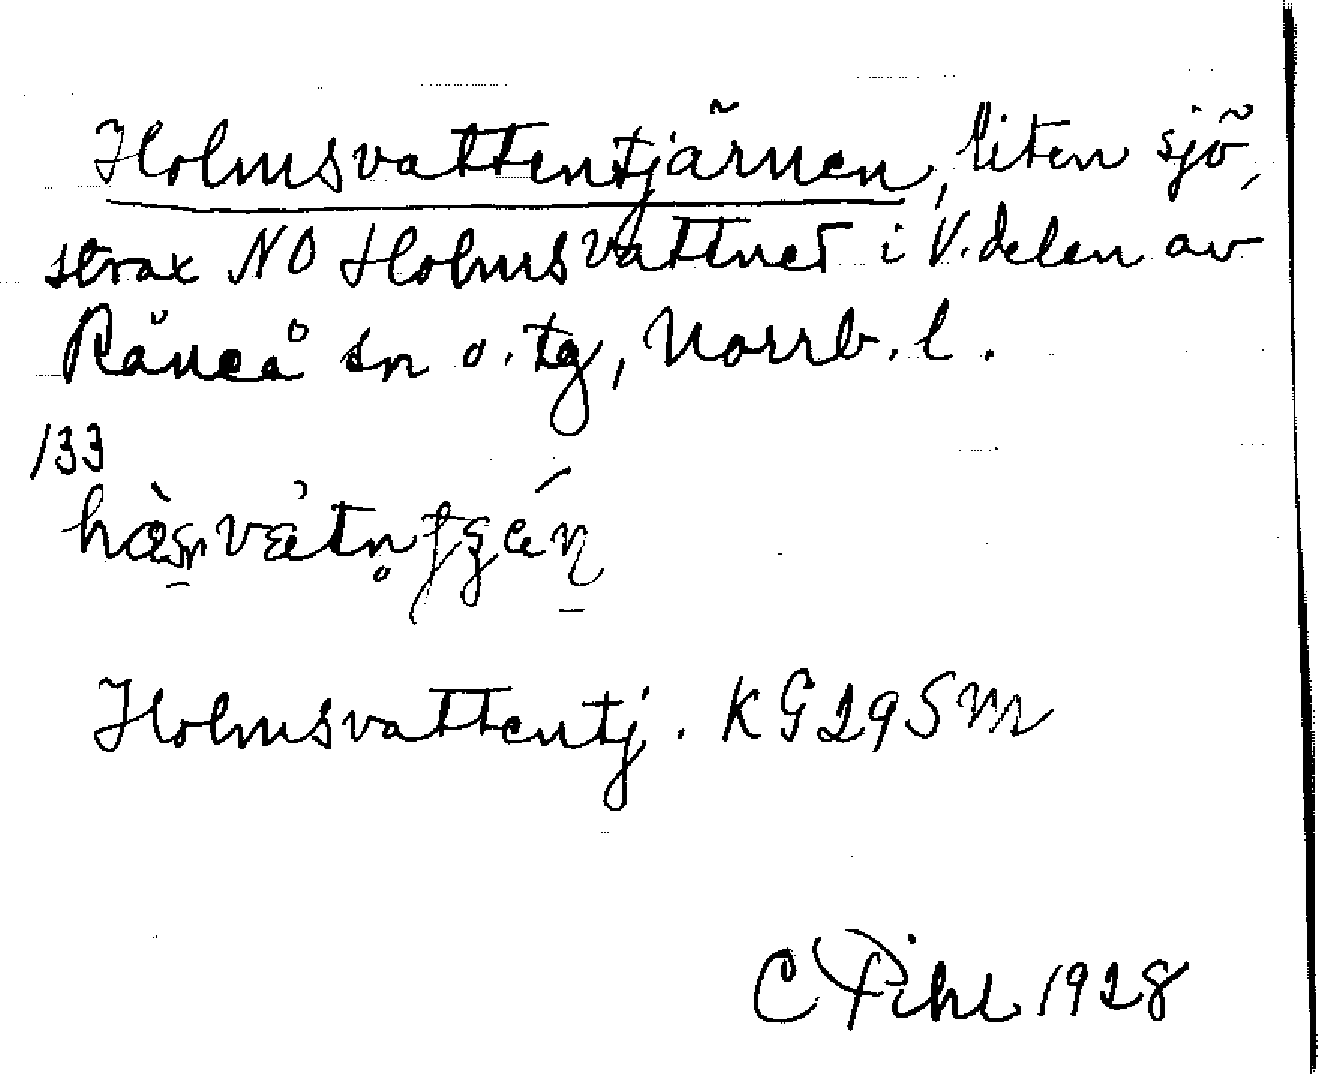 Holmsvattentjärnen, liten sjö,
strax NO Holmsvattnet i V. delen av
Råneå sn o. tg, Norrb. l.
133
Holmsvattentj. KG 29 Sm
C Pihl 1928